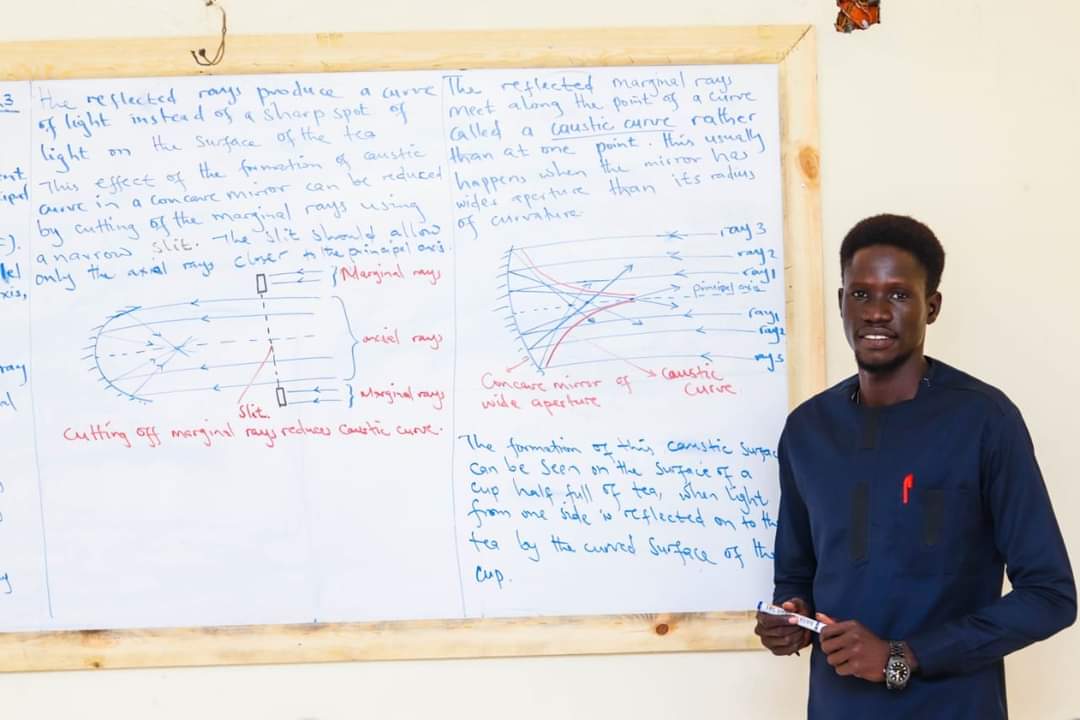 .3
the reflected rays produce a curve
of light instead of a sharp spot of
light on the surface of the tea
This effect of the formation of caustic
curve in a concave mirror can be reduced
by cutting of the marginal rays using
a narrow slit. The slit should allow
only the axial rays closer to the principal axis.
Marginal rays
axial rays
Marginal rays
Slit.
Cutting off marginal rays reduces caustic curve.
The reflected marginal rays
meet along the point of a curve
called a caustic curve rather
than at one point. This usually
happens when the mirror has
wider aperture than its radius
of curvature.
ray 3
ray 2
ray 1
principal axis
ray 1
ray 2
Concave mirror of
wide aperture
Caustic
Curve
The formation of this caustic surfac
can be seen on the surface of a
cup half full of tea, when light
from one side is reflected on to th
tea by the curved surface of th
cup.